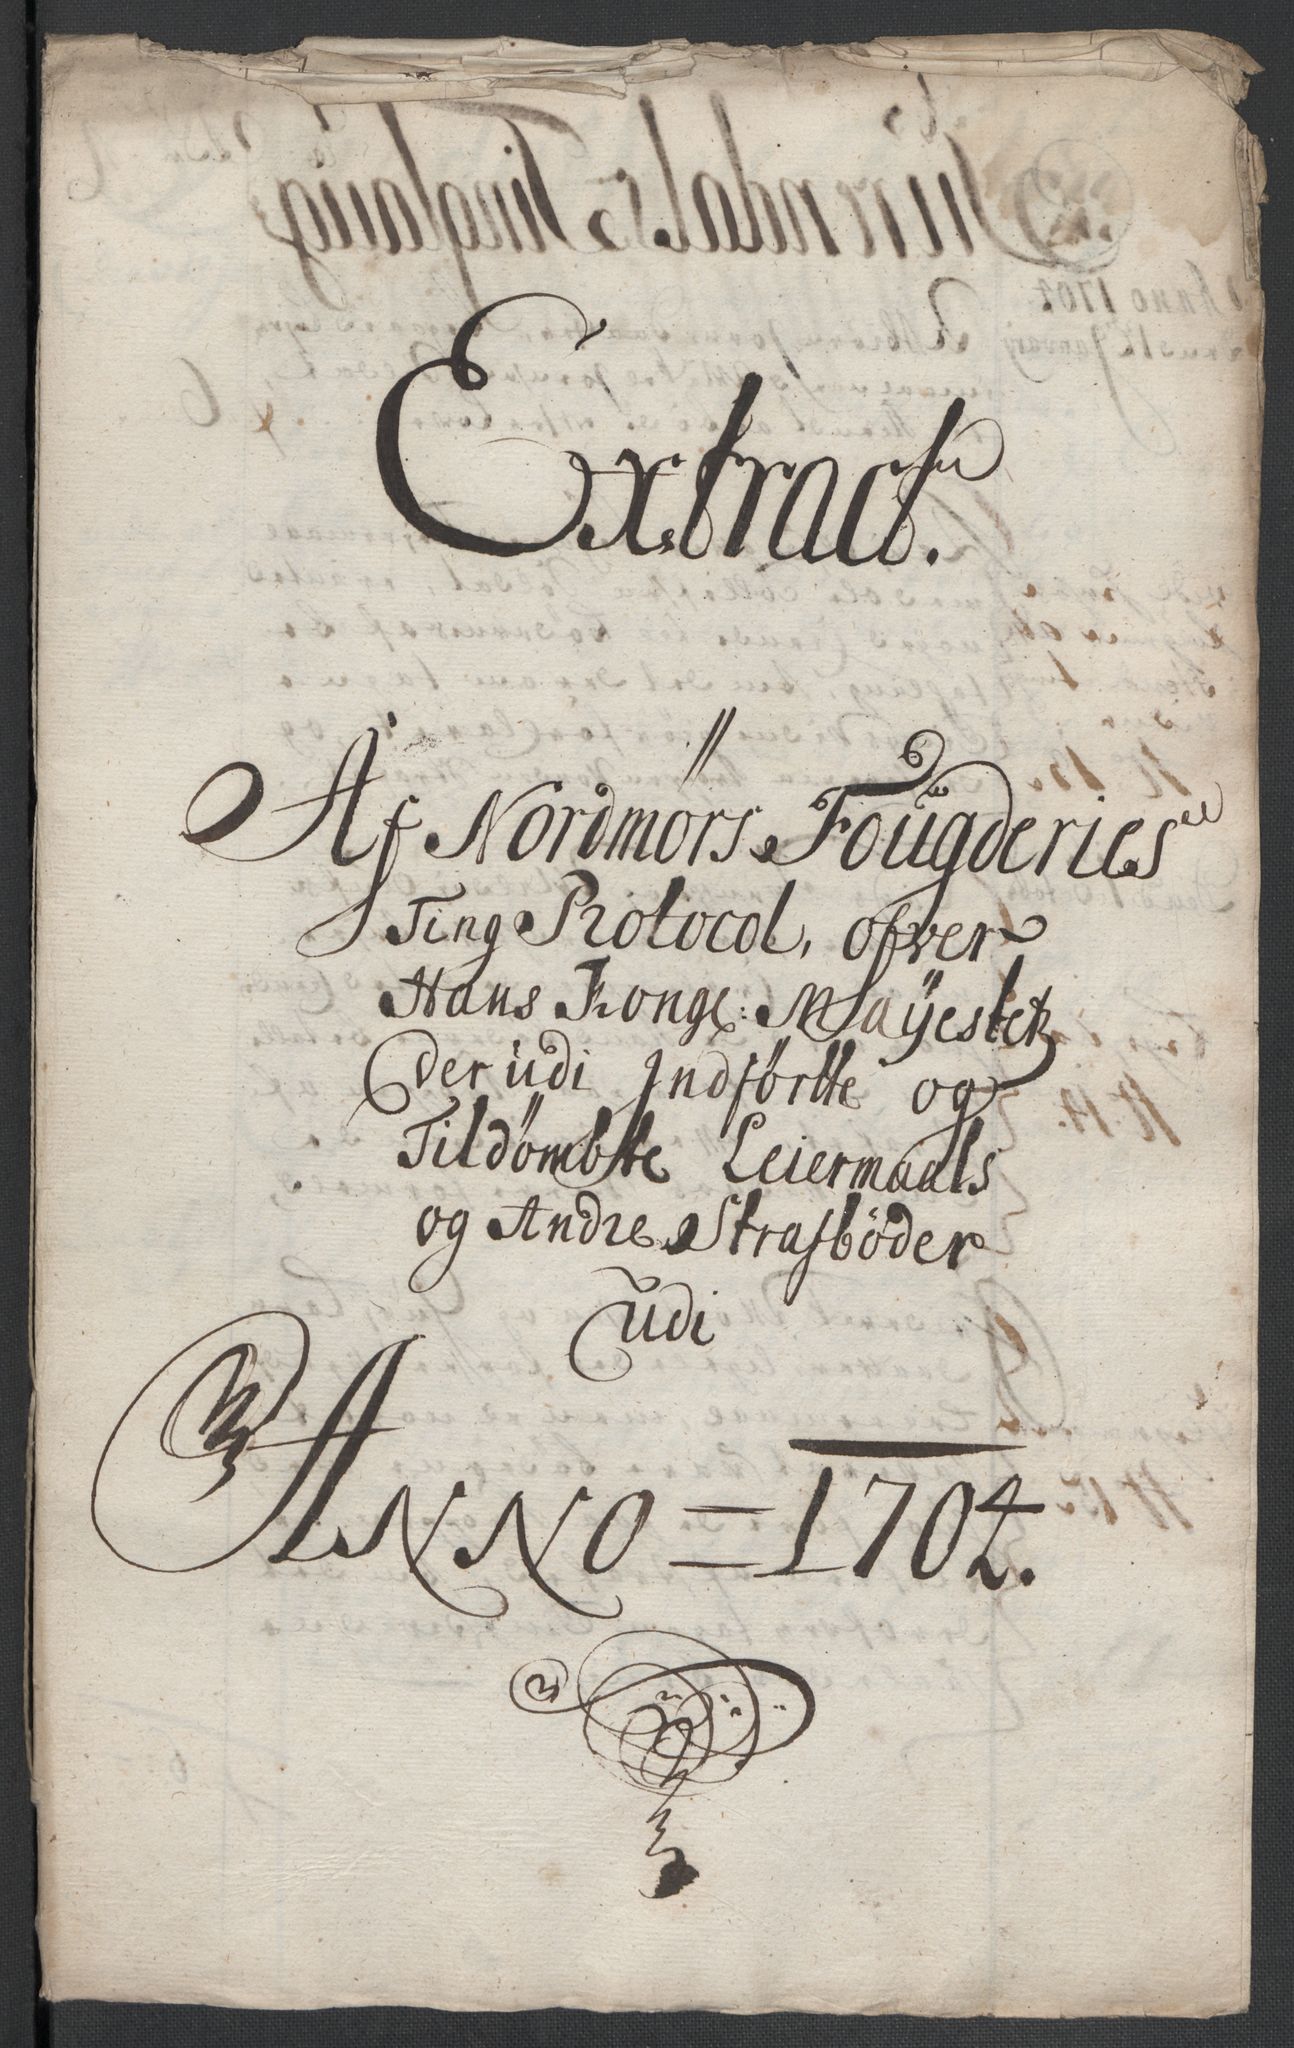 Extract.
Af Nordmörs Foügderies
Ting Protocol, ofver
Hans Konge: Maÿestetz
der udi Indförtte og
Tildömbtte Leiermaals
og Andre Strafböder
udi
ANNO = 1704.